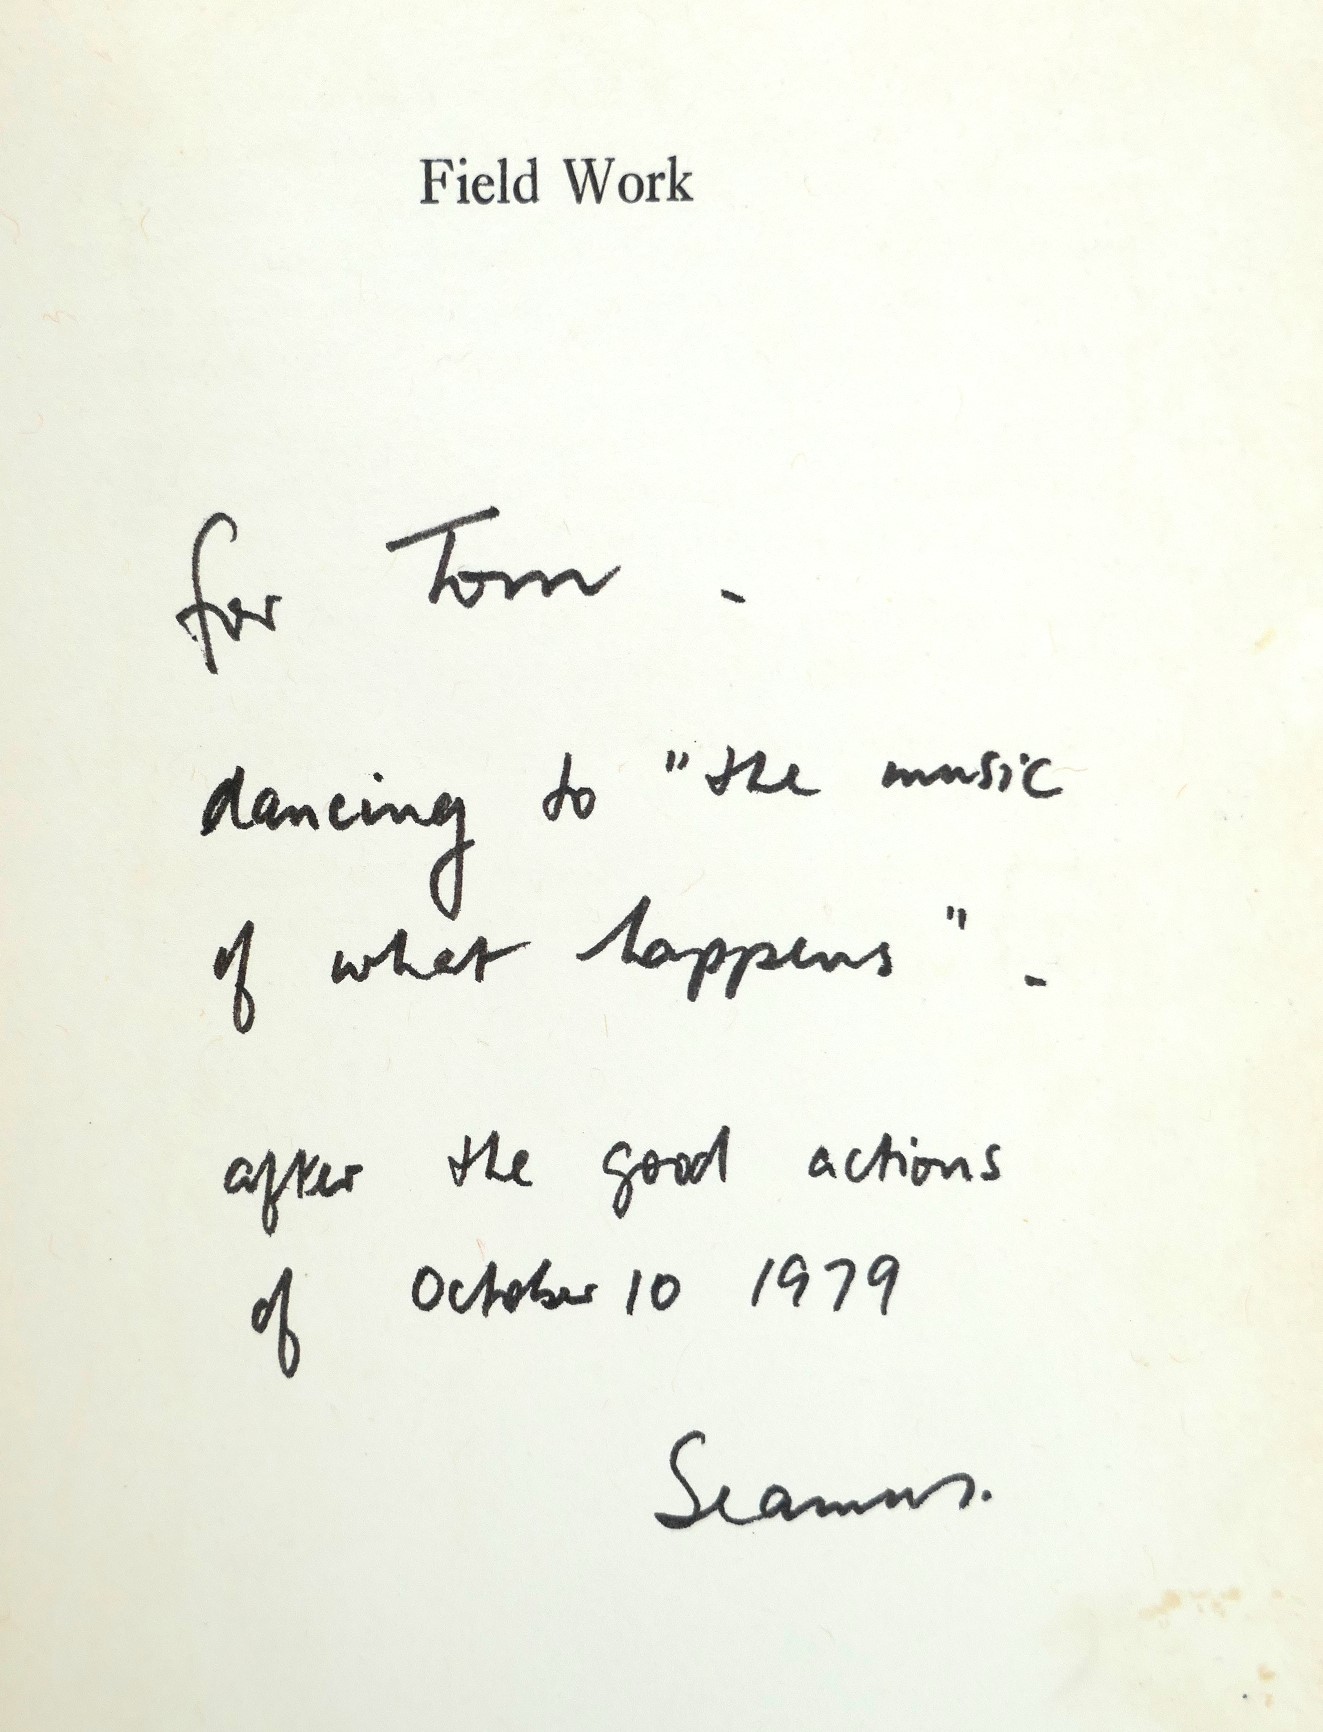 Field Work
for Tom -
dancing to "the music
of what happens" -
after the good actions
of October 10 1979
Seamus.